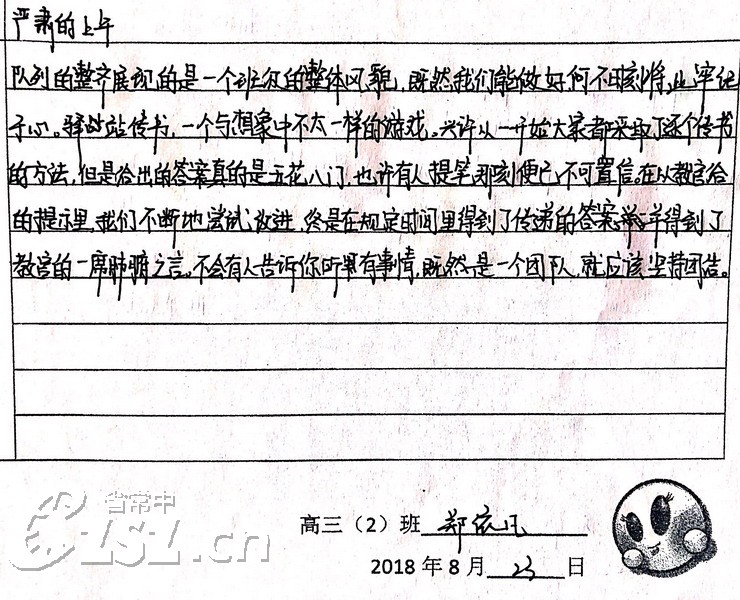 严肃的上午
队列的整齐展现的是一个班级的整体风貌,既然我们能做好何不时刻将此牢记
于心。驿站传书,一个与想象中不太一样的游戏。兴许从一开始大家都采取了逐个传书
的方法,但是给出的答案真的是五花八门,也许有人提笔那刻便已不可置信,在从教官给
的提示里,我们不断地尝试改进,终是在规定时间里得到了传递的答案,得到了
教官的一席肺腑之言。不会有人告诉你所有事情,既然是一个团队,就应该坚持团结。
省常中
CZSZ.cn
高三(2)班 郑依凡
2018年8月 23 日